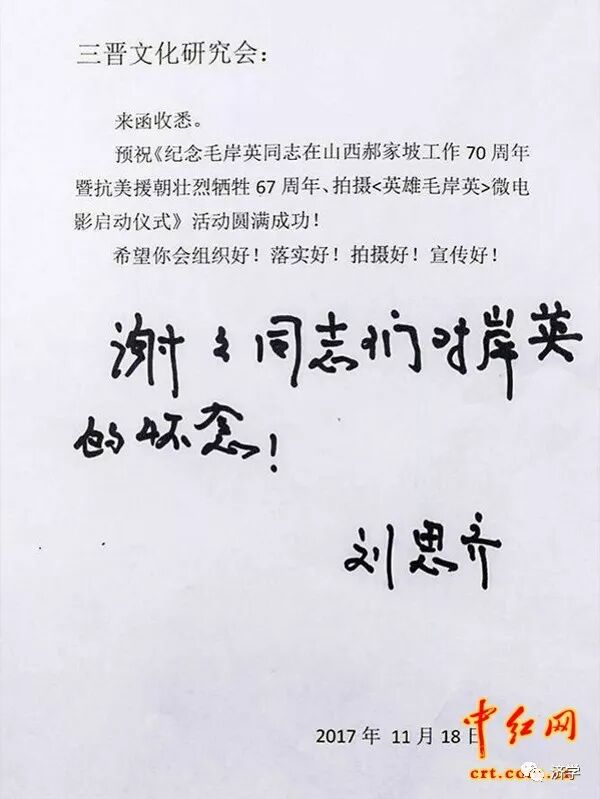 三晋文化研究会：
来函收悉。
预祝《纪念毛岸英同志在山西郝家坡工作 70 周年
暨抗美援朝壮烈牺牲 67 周年、拍摄<英雄毛岸英>微电
影启动仪式》活动圆满成功！
希望你会组织好！落实好！拍摄好！宣传好！
谢谢同志们对岸英
的怀念！
刘思齐
2017 年 11 月 18 日
中红网
crt.com.
济学